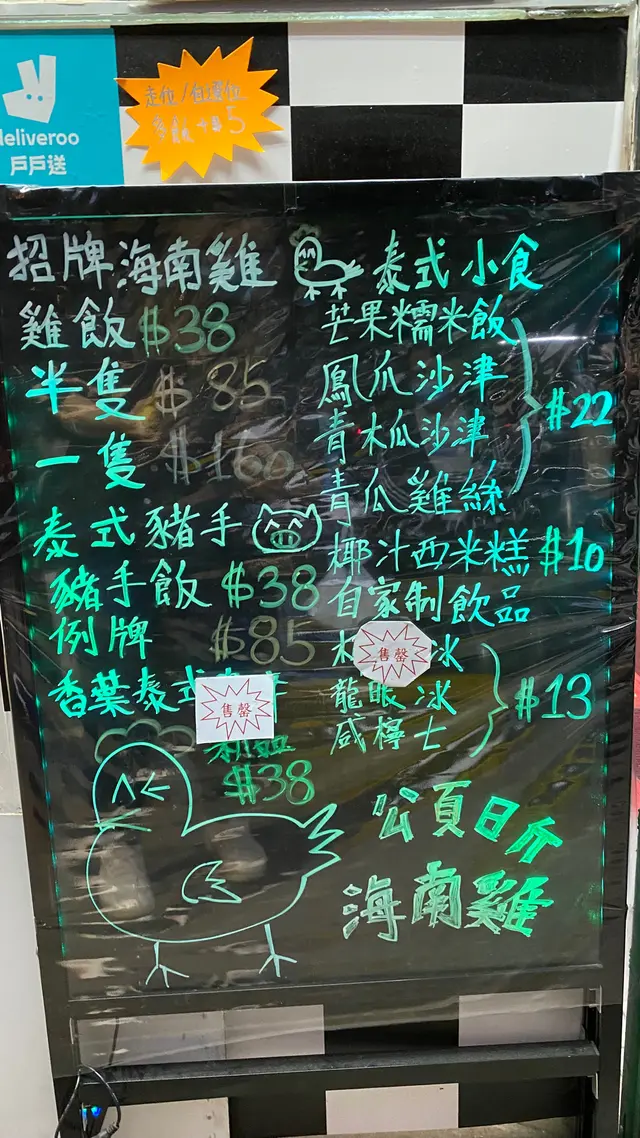 deliveroo
戶戶送
走位/自選位
5
招牌海南雞
雞飯 $38
半隻 $85
一隻 $160
泰式豬手
豬手飯 $38
例牌 $85
香葉泰式
售罄
$38
泰式小食
芒果糯米飯
鳳爪沙津
青木瓜沙津
青瓜雞絲
$22
椰汁西米糕 $10
自家制飲品
木
售罄
冰
龍眼冰
咸檸士
$13
海南雞